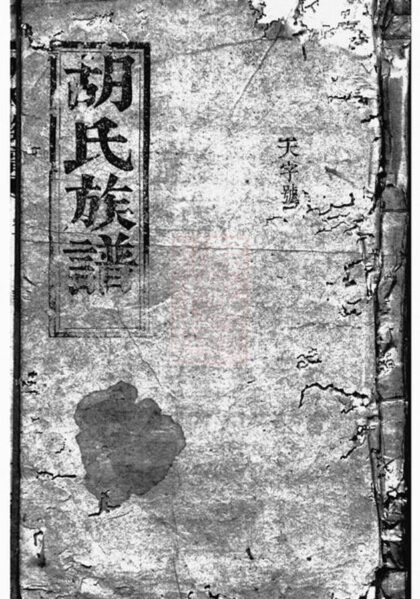 胡氏族譜
天字號